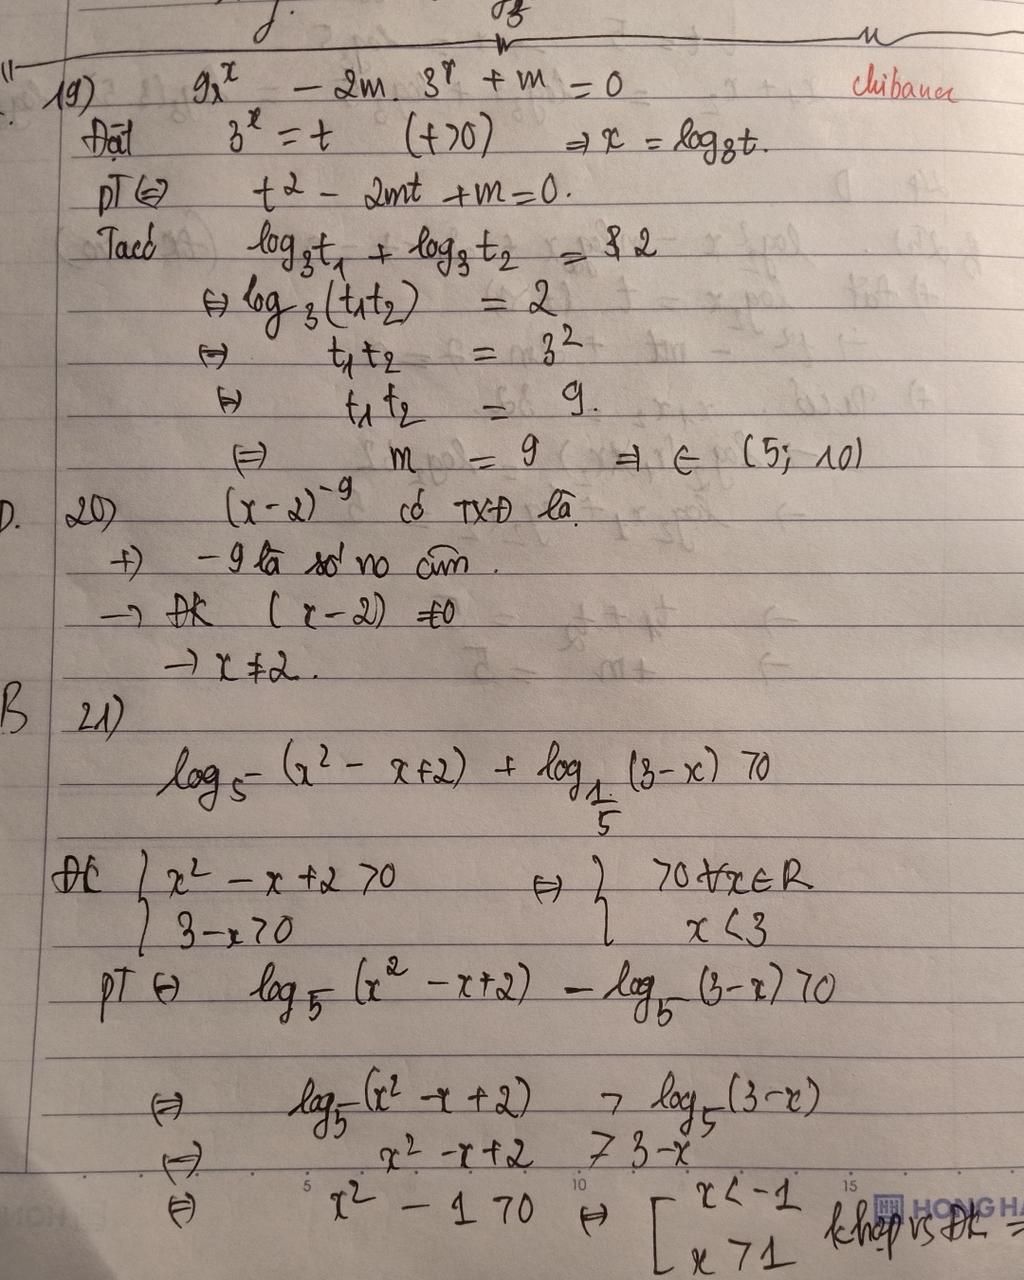 19) 9^x - 2m. 3^x + m = 0 chibana
Đặt 3^x = t (t>0) ⇒ x = log_3 t.
PT ⇔ t^2 - 2mt + m = 0.
Ta có log_3 t_1 + log_3 t_2 = 2
⇔ log_3 (t_1 t_2) = 2
⇔ t_1 t_2 = 3^2
⇔ t_1 t_2 = 9.
⇔ m = 9 ⇒ ∈ (5; 10)
D. 20) (x-2)^-9 có TXĐ là
+) -9 là số no âm.
→ ĐK (x-2) ≠0
→ x ≠ 2.
B 21)
log_5 (x^2 - x+2) + log_{1/5} (3-x) >0
ĐK { x^2 - x +2 >0 ⇔ { >0 ∀x∈R
3-x >0 x <3
PT ⇔ log_5 (x^2 - x+2) - log_5 (3-x) >0
⇔ log_5 (x^2 - x +2) > log_5 (3-x)
⇔ x^2 - x +2 > 3-x
5 10 15
⇔ x^2 - 1 >0 ⇔ [ x < -1
x >1 khợp vs ĐK =
HH HONG HA